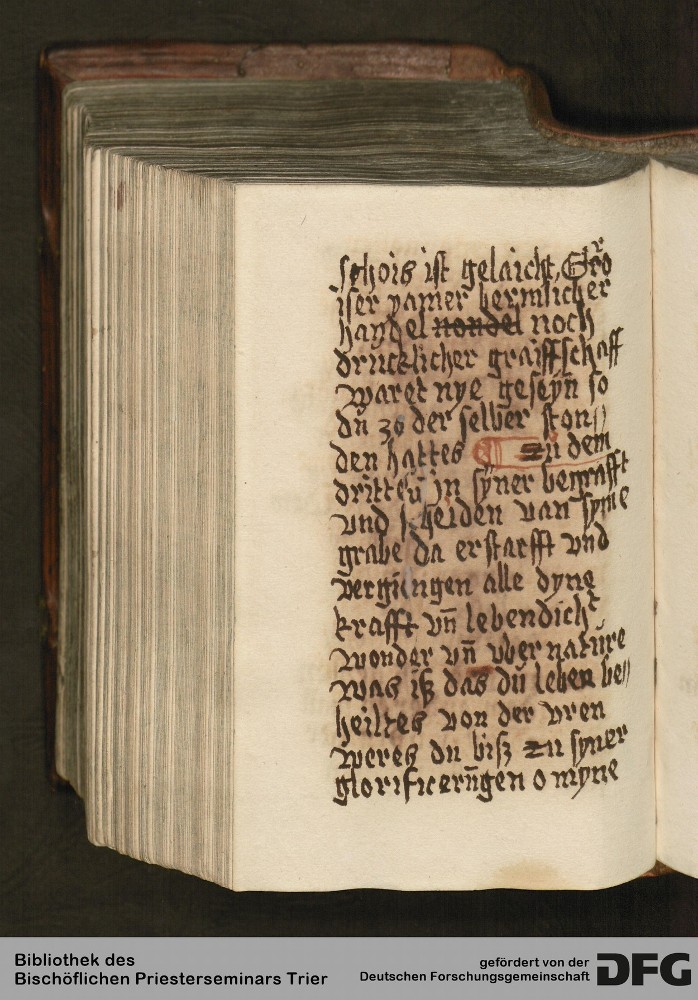 schois ist gelaicht, Gro
isser yamer bermlicher
handel nondel noch
drucklicher graiffschaff
waret nye geseyn so
du zo der selber ston
den hattes zu dem
dritteū in syner begrafft
vnd scheiden van syme
grabe da erstarfft vnd
vergiengen alle dyne
krafft vn̄ lebendicht
wonder vn̄ vber nature
was iß das du leben be
heiltes von der vren
weres du biß zu syner
glorificerūgen o myne
Bibliothek des
Bischöflichen Priesterseminars Trier
gefördert von der
Deutschen Forschungsgemeinschaft
DFG